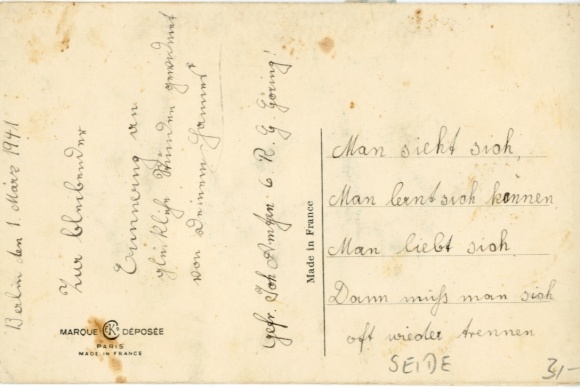 Berlin den 1. März 1941!
Zur bleibender
Erinnerung an
Stunden gewidmet
von Deinem Hannes
Gefr. Joh 6. R. G. Göring!
Made in France
Man sieht sich,
Man lernt sich kennen,
Man liebt sich
Dann muß man sich
oft wieder trennen
SEIDE
3,-
MARQUE CK DÉPOSÉE
PARIS
MADE IN FRANCE